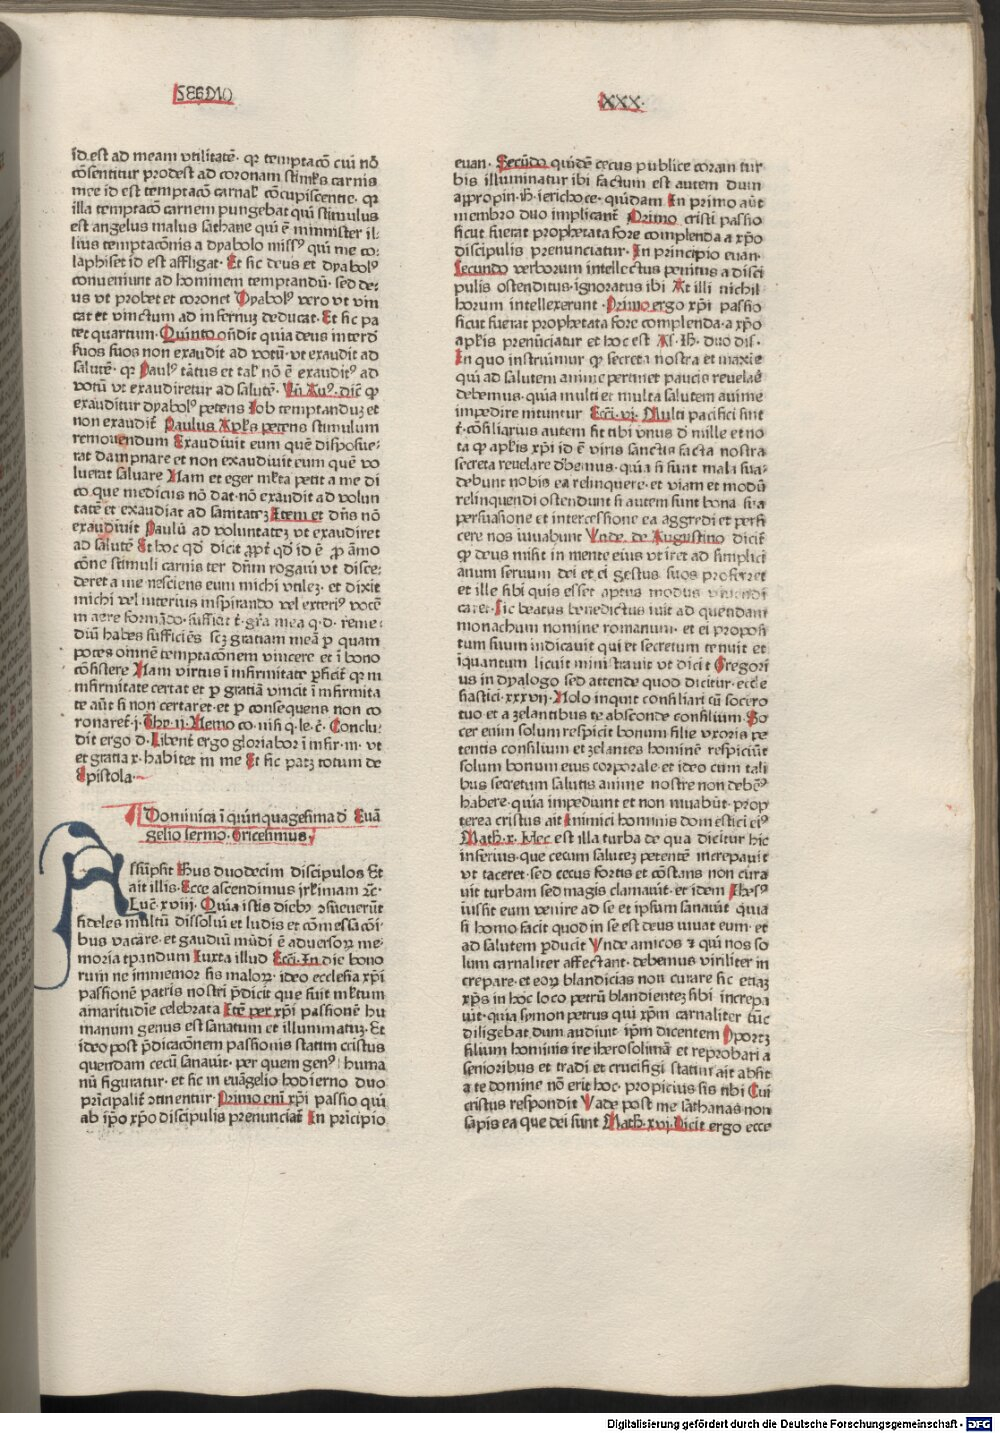 SERMO
XXX·
id est ad meam vtilitatē· qꝛ temptacō cui nō
cōsentitur prodest ad coronam stimls carnis
mee id est temptacō carnal̓ cōcupiscentie· qꝛ
illa temptacō carnem pungebat qui stimulus
est angelus malus sathane qui ē minister il⸗
lius temptacōnis a dyabolo missꝰ qui me co⸗
laphiset id est affligat· Et sic deus et dyabolꝰ
conueniunt ad hominem temptandū· sed de⸗
us vt probet et coronet Dyabolꝰ vero vt vin
cat et vinctum ad infernuꝫ deducat· Et sic pa
tet quartum· Quinto ondit quia deus interd
suos suos non exaudit ad votū· vt exaudit ad
salutē· qꝛ Paulꝰ tātus et tal̓ nō ē exauditꝰ ad
votū vt exaudiretur ad salutē· Vn̄ Auꝰ· dic̄ ꝙ
exauditur dyabolꝰ petens Iob temptanduꝫ et
non exaudit̄ Paulus Apl̓s petens stimulum
remouendum Exaudiuit eum quē disposue⸗
rat dampnare et non exaudiuit eum quē vo
luerat saluare Nam et eger ml̓ta petit a me di
co que medicus nō dat· nō exaudit ad volun
tatē et exaudiat ad sanitateꝫ Item et dn̄s nō
exaudiuit Paulū ad voluntateꝫ vt exaudiret
ad salutē Et hoc qd̓ dicit ꝓpt̓ qd̓ id ē ꝓ āmo
cōne stimuli carnis ter dn̄m rogaui vt disce⸗
deret a me nesciens eum michi vtileꝫ· et dixit
michi vel interius inspirando vel exteriꝰ vocē
in aere formādo· sufficit t̓· grā mea q· d· reme⸗
diū habes sufficiēs scꝫ gratiam meā ꝑ quam
potes omnē temptacōnem vincere et ī bono
cōsistere Nam virtus ī infirmitate ꝑficit̄ qꝛ in
infirmitate certat et ꝑ gratiā vincit ī infirmita
te aūt si non certaret· et ꝑ consequens non co
ronaret̄· j· Tht̓· ij· Nemo co· nisi q· le· c̄· Conclu⸗
dit ergo d· Libent̓ ergo gloriabor ī infir· m· vt
et gratia x· habitet in me Et sic patꝫ totum de
Epistola·
Dominica ī quinquagesima d̓ Euā
gelio sermo Tricesimus
Assūpsit Ihus duodecim discipulos Et
ait illis· Ecce ascendimus irl̓imam ⁊c̄·
Luc̄· xviij· Quia istis diebꝫ ꝯsueuerūt
fideles multū dissolui et ludis et cōmessacōi⸗
bus vacare· et gaudiū mūdi ē aduersoꝝ me⸗
moria tp̄andum Iuxta illud Ecci· In die bono
rum ne immemor sis maloꝝ· ideo ecclesia xp̄i
passionē patris nostri p̄dicit que fuit ml̓tum
amaritudīe celebrata Itē per xp̄i passionē hu
manum genus est sanatum et illuminatuꝫ· Et
ideo post p̄dicacōnem passionis statim cristus
quendam cecū sanauit· per quem genꝰ huma
nū figuratur· et sic in euāgelio hodierno duo
prīcipalit̓ ꝯtinentur· Primo enī xp̄i passio qui
ab ip̄o xp̄o discipulis prenunciat̄ In prīcipio
euan· Secūdo quidē cecus publice coram tur
bis illuminatur ibi factum est autem dum
appropin· ih̓· ierichο ce· quidam In primo aūt
membro duo implicant̄ Primo cristi passio
sicut fuerat prophetata fore complenda a xp̄o
discipulis prenunciatur· In principio euan·
Secundo verborum intellectus penitus a disci
pulis ostenditus· ignoratus ibi At illi nichil
horum intellexerunt· Primo ergo xp̄i passio
sicut fuerat prophetata fore complenda· a xp̄o
apl̓is prenūciatur et hoc est As· ih̓· duo dis·
In quo instruimur ꝙ secreta nostra et maxīe
qui ad salutem anime pertinet paucis reuelaē
debemus· quia multi et multa salutem anime
impedire nituntur Ecci· vi· Multi pacifici sint
t̓· cōsiliarius autem sit tibi vnus d̓ mille et no
ta ꝙ apl̓is xp̄i id ē viris sanctis facta nostra
secreta reuelare d̓bemus· quia si sunt mala sua⸗
debunt nobis ea relinquere· et viam et modū
relinquendi ostendunt si autem sunt bona sua
persuasione et intercessione ea aggredi et perfi
cere nos iuuabunt Vnde· de Augustino dicit̄
ꝙ deus misit in mente eius vt iret ad simplici
anum seruum dei et ei gestus suos proferret
et ille sibi quis esset aptus modus viuendi
caret· Sic beatus benedictus iuit ad quendam
monachum nomine romanum· et ei proposi
tum suum indicauit qui et secretum tenuit et
īquantum licuit ministrauit vt dicit Gregori
us in dyalogo sed attende quod dicitur· eccle
siastici· xxxvij· Nolo inquit consiliari cū socero
tuo et a zelantibus te absconde consilium· So
cer enim solum respicit bonum filie vxoris pe
tentis consilium et zelantes hominē respiciūt
solum bonum eius corporale· et ideo cum tali
bus secretum salutis anime nostre non debēꝰ
habere· quia impediunt et non iuuabūt· prop
terea cristus ait Inimici hominis domestici eiꝰ
Math· x· Hec est illa turba de qua dicitur hic
inferius· que cecum saluteꝫ petentē increpauit
vt taceret· sed cecus fortis et cōstans non cura
uit turbam sed magis clamauit· et idem Ihesꝰ
iussit eum venire ad se et ipsum sanauit· quia
si homo facit quod in se est deus iuuat eum· et
ad salutem ꝑducit Vnde amicos ⁊ qui nos so
lum carnaliter affectant· debemus viriliter in
crepare· et eoꝝ blandicias non curare sic etiaꝫ
xp̄s in hoc loco petrū blandienteꝫ sibi increpa
uit· quia symon petrus qui xp̄m carnaliter tūc
diligebat dum audiuit ip̄m dicentem Oportꝫ
filium hominis ire iherosolimā et reprobari a
senioribus et tradi et crucifigi statim ait absit
a te domine nō erit hoc· propicius sis tibi Cui
cristus respondit Vade post me sathanas non
sapis ea que dei sunt Math· xvj· Dicit ergo ecce
Digitalisierung gefördert durch die Deutsche Forschungsgemeinschaft - DFG